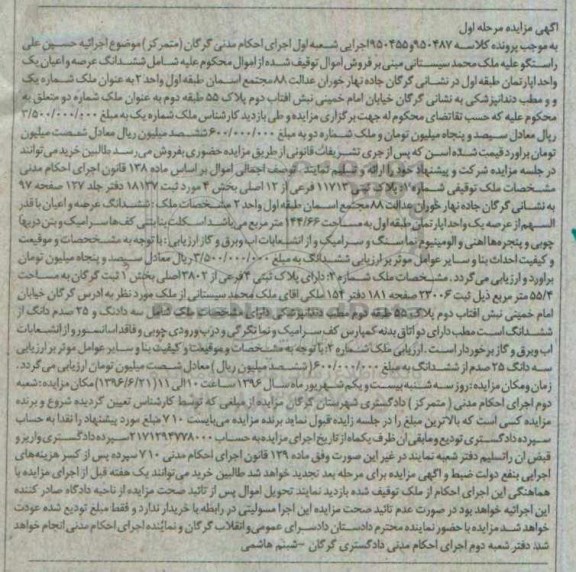 آگهی مزایده مرحله اول
به موجب پرونده کلاسه ۹۵۰۴۸۷و۹۵۰۴۵۵اجرایی شعبه اول اجرای احکام مدنی گرگان (متمرکز) موضوع اجرائیه حسین علی
راستگو علیه ملک محمد سیستانی مبنی بر فروش اموال توقیف شده از اموال محکوم علیه شامل ششدانگ عرصه و اعیان یک
واحد اپارتمان طبقه اول در نشانی گرگان جاده نهار خوران عدالت ۸۸مجتمع اسمان طبقه اول واحد ۲به عنوان ملک شماره یک
و و مطب دندانپزشکی به نشانی گرگان خیابان امام خمینی نبش افتاب دوم پلاک ۵۵ طبقه دوم به عنوان ملک شماره دو متعلق به
محکوم علیه که حسب تقاضای محکوم له جهت برگزاری مزایده و طی بازدید کارشناس ملک شماره یک به مبلغ ۳/۵۰۰/۰۰۰/۰۰۰
ریال معادل سیصد و پنجاه میلیون تومان و ملک شماره دو به مبلغ ۶۰۰/۰۰۰/۰۰۰ ششصد میلیون ریال معادل شصت میلیون
تومان براورد قیمت شده است که پس از جری تشریفات قانونی از طریق مزایده حضوری بفروش می رسد طالبین خرید می توانند
در جلسه مزایده شرکت و پیشنهاد خود را ارائه و تسلیم نمایند. توصیف اجمالی اموال بر اساس ماده ۱۳۸ قانون اجرای احکام مدنی
مشخصات ملک توقیفی شماره ۱: پلاک ثبتی ۱۱۷۱۳ فرعی از ۱۲ اصلی بخش ۴ مورد ثبت ۱۸۱۳۷ دفتر جلد ۱۲۷ صفحه ۹۷
به نشانی گرگان جاده نهار خوران عدالت ۸۸ مجتمع اسمان طبقه اول واحد ۲ مشخصات ملک : ششدانگ عرصه و اعیان با قدر
السهم از عرصه یک واحد اپارتمان طبقه اول به مساحت ۱۴۴/۶۶ متر مربع می باشد اسکلت بنا بتنی کف ها سرامیک و بتن دربها
چوبی و پنجره ها اهنی و الومینیوم نما سنگ و سرامیک و از انشعابات اب وبرق و گاز ارزیابی : با توجه به مشخصات و موقعیت
و کیفیت احداث بنا و سایر عوامل موثر بر ارزیابی ششدانگ به مبلغ ۳/۵۰۰/۰۰۰/۰۰۰ ریال معادل سیصد و پنجاه میلیون تومان
براورد و ارزیابی می گردد . مشخصات ملک شماره ۲: دارای پلاک ثبتی ۴ فرعی از ۳۸۰۲ اصلی بخش ۱ ثبت گرگان به مساحت
۵۵/۴ متر مربع ذیل ثبت ۲۳۰۰۶ صفحه ۱۸۱ دفتر ۱۵۴ ملکی اقای ملک محمد سیستانی از ملک مورد نظر به ادرس گرگان خیابان
امام خمینی نبش افتاب دوم پلاک ۵۵ طبقه دوم مطب دندانپزشکی دارای مشخصات ملک شامل سه دانگ و ۲۵ صدم دانگ از
ششدانگ است مطب دارای دو اتاق بدنه کمپارس کف سرامیک و نما گرگی و درب ورودی چوبی و فاقد اسانسور و از انشعابات
اب وبرق و گاز برخوردار است . ارزیابی ملک شماره ۲: با توجه به مشخصات و موقعیت و کیفیت بنا و سایر عوامل موثر بر ارزیابی
سه دانگ ۲۵ صدم از ششدانگ به مبلغ ۶۰۰/۰۰۰/۰۰۰ (ششصد میلیون ریال ) معادل شصت میلیون تومان ارزیابی می گردد .
زمان ومکان مزایده :روز سه شنبه بیست و یکم شهریور ماه سال ۱۳۹۶ ساعت ۱۰ الی ۱۱ (۱۳۹۶/۶/۲۱) مکان مزایده :شعبه
دوم اجرای احکام مدنی ( متمرکز ) دادگستری شهرستان گرگان مزایده از مبلغی که توسط کارشناس تعیین گردیده شروع و برنده
مزایده کسی است که بالاترین مبلغ را در جلسه زایده قبول نماید برنده مزایده می بایست ۱۰٪ مبلغ مورد پیشنهاد را نقدا به حساب
سپرده دادگستری تودیع ومابقی ان ظرف یکماه از تاریخ اجرای مزایده به حساب ۲۱۷۱۲۹۴۷۷۸۰۰۰سپرده دادگستری واریز و
قبض ان راتسلیم دفتر شعبه نمایند در غیر این صورت وفق ماده ۱۲۹ قانون اجرای احکام مدنی ۱۰٪ سپرده پس از کسر هزینه های
اجرایی بنفع دولت ضبط و اگهی مزایده برای مرحله بعد تجدید خواهد شد طالبین خرید می توانند یک هفته قبل از اجرای مزایده با
هماهنگی این اجرای احکام از ملک توقیف شده بازدید نمایند تحویل اموال پس از تائید صحت مزایده از ناحیه دادگاه صادر کننده
این اجرائیه خواهد بود در صورت عدم تائید صحت مزایده این اجرا مسولیتی در رابطه با خریدار ندارد و فقط مبلغ تودیع شده عودت
خواهد شد مزایده با حضور نماینده محترم دادستان دادسرای عمومی وانقلاب گرگان و نماینده اجرای احکام مدنی انجام خواهد
شد دفتر شعبه دوم اجرای احکام مدنی دادگستری گرگان -شبنم هاشمی